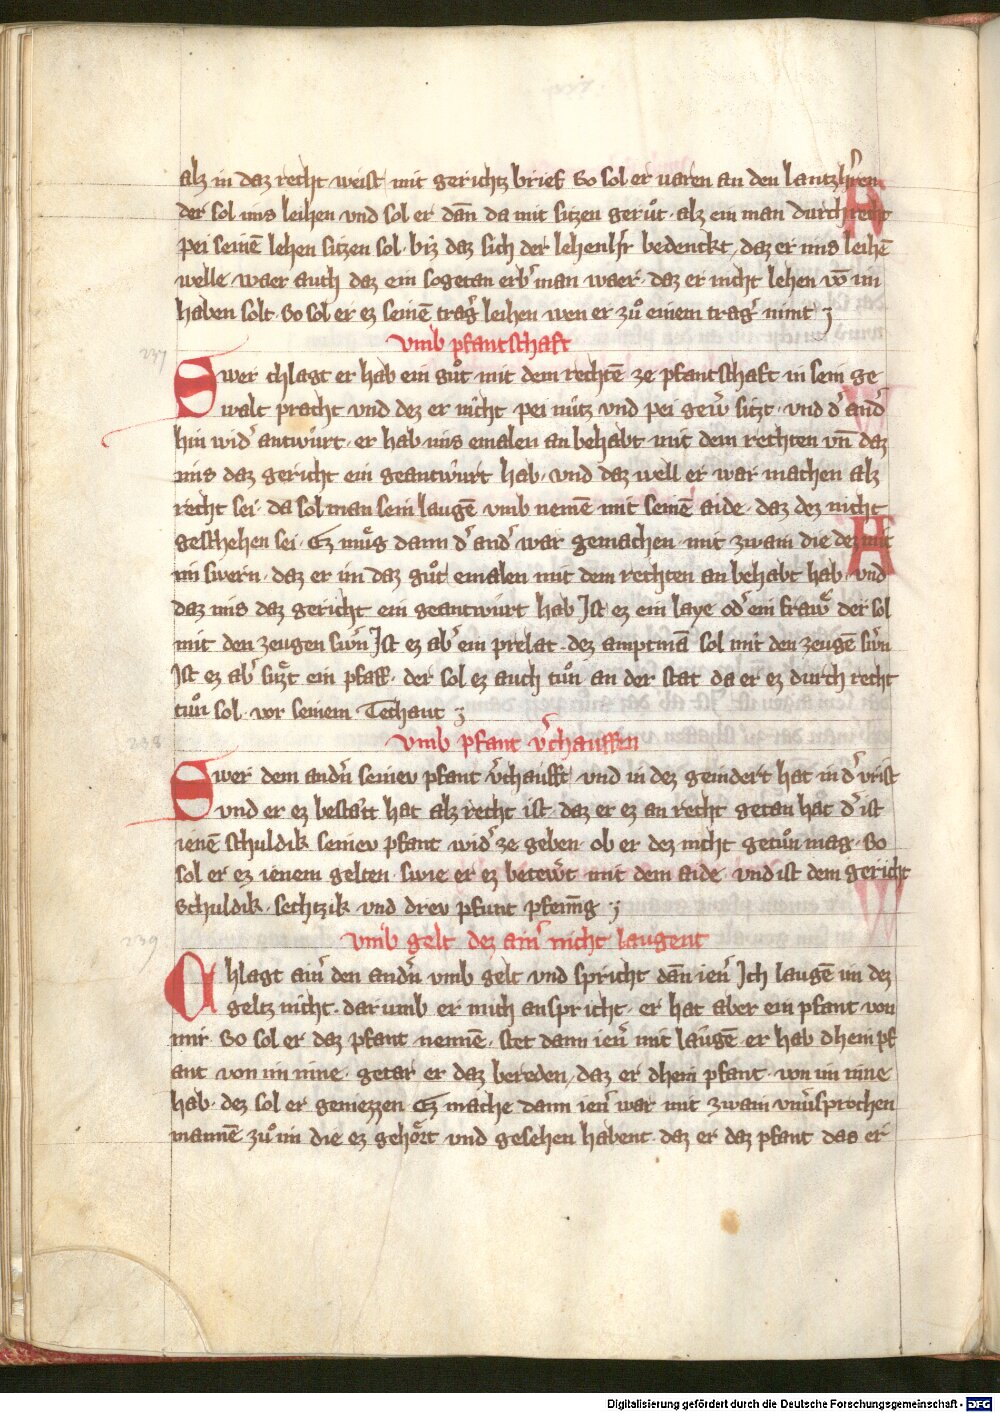 alz in daz recht weist mit gerichtz brief So sol er varen an den lantzhͤrren
der sol ims leihen vnd sol er dan̄ da mit sitzen gerůt · alz ein man durch recht
pei seinē lehen sitzen sol · biz daz sich der lehenhˀr bedenckt / daz er ims leihē
welle · waer auch daz ein sogetan erbˀ man waer · daz er nicht lehen vō im
haben solt · So sol er ez seinē tragˀ leihen wen er zů einem tragˀ nimt ʒ
vmb pfantschaft
237
Swer chlagt er hab ein gůt · mit dem rechtē ze pfantschaft in sein ge
walt pracht vnd dez er nicht pei nütz vnd pei gewˀ sitzt · vnd dˀ andˀ
hin widˀ antwürt · er hab ims emalen an behabt · mit dem rechten vn̄ daz
ims daz gericht ein geantwürt hab · vnd daz well er war machen alz
recht sei · da sol man sein laugē vmb nemē mit seinē aide · daz dez nicht
geschehen sei · Ez mͤug dann dˀ andˀ war gemachen · mit zwain die dez mit
im swern · daz er im daz gůt emalen mit dem rechten an behabt hab · vnd
daz ims daz gericht ein geantwürt hab Ist ez ein laye odˀ ein frawͤ der sol
mit den zeugen swˀn Ist ez abˀ ein prelat · dez amptmā sol mit den zeugē swˀn
Ist ez abˀ süzt ein pfaff · der sol ez auch tůn an der stat da er ez durch recht
tůn sol · vor seinem Techant ʒ
238
vmb pfant vˀchauffen
Swer dem andˀn seinev pfant vˀchaufft · vnd in dez geindert hat in dˀ vrist
vnd er ez bestätt hat alz recht ist · daz er ez an recht getan hat dˀ ist
ienē schuldik seinev pfant widˀ ze geben · ob er dez nicht getůn mag · So
sol er ez ienem gelten · swie er ez betewˀt mit dem aide · vnd ist dem gericht
Schuldik · sechtzik · vnd drev pfunt pfenn̄g ʒ
239
vmb gelt dez ainˀ nicht laugent
Chlagt ainˀ den andˀn vmb gelt vnd spricht dan̄ ienˀ Ich laugē im dez
geltz nicht · darumb er mich anspricht · er hat aber ein pfant von
mir · So sol er daz pfant nennē · stet dann ienˀ mit laugē · er hab dhein pf
ant von im inne · getar er daz bereden / daz er dhein pfant · von im inne
hab · dez sol er geniezzen Ez mache dann ienˀ war mit zwain vnuˀsprochen
mannē zů im die ez gehͤort vnd gesehen habent · daz er daz pfant daz er
Digitalisierung gefördert durch die Deutsche Forschungsgemeinschaft - DFG